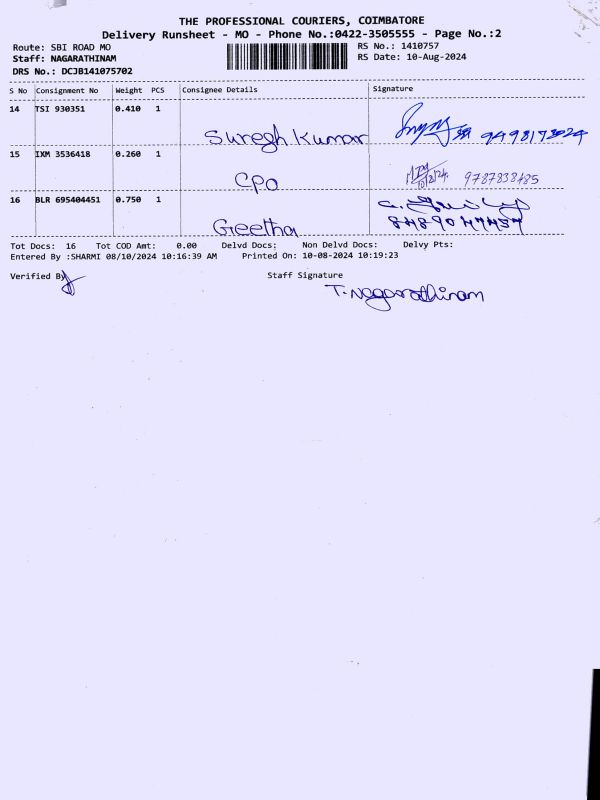 THE PROFESSIONAL COURIERS, COIMBATORE
Delivery Runsheet - MO - Phone No.:0422-3505555 - Page No.:2
Route: SBI ROAD MO RS No.: 1410757
Staff: NAGARATHINAM RS Date: 10-Aug-2024
DRS No.: DCJB141075702
S No Consignment No Weight PCS Consignee Details Signature
14 TSI 930351 0.410 1
Suregh Kumar
15 IXM 3536418 0.260 1
CPO 10/8/24 9787833485
16 BLR 695404451 0.750 1
Geetha
Tot Docs: 16 Tot COD Amt: 0.00 Delvd Docs: Non Delvd Docs: Delvy Pts:
Entered By :SHARMI 08/10/2024 10:16:39 AM Printed On: 10-08-2024 10:19:23
Verified By Staff Signature
T. Nagarathinam